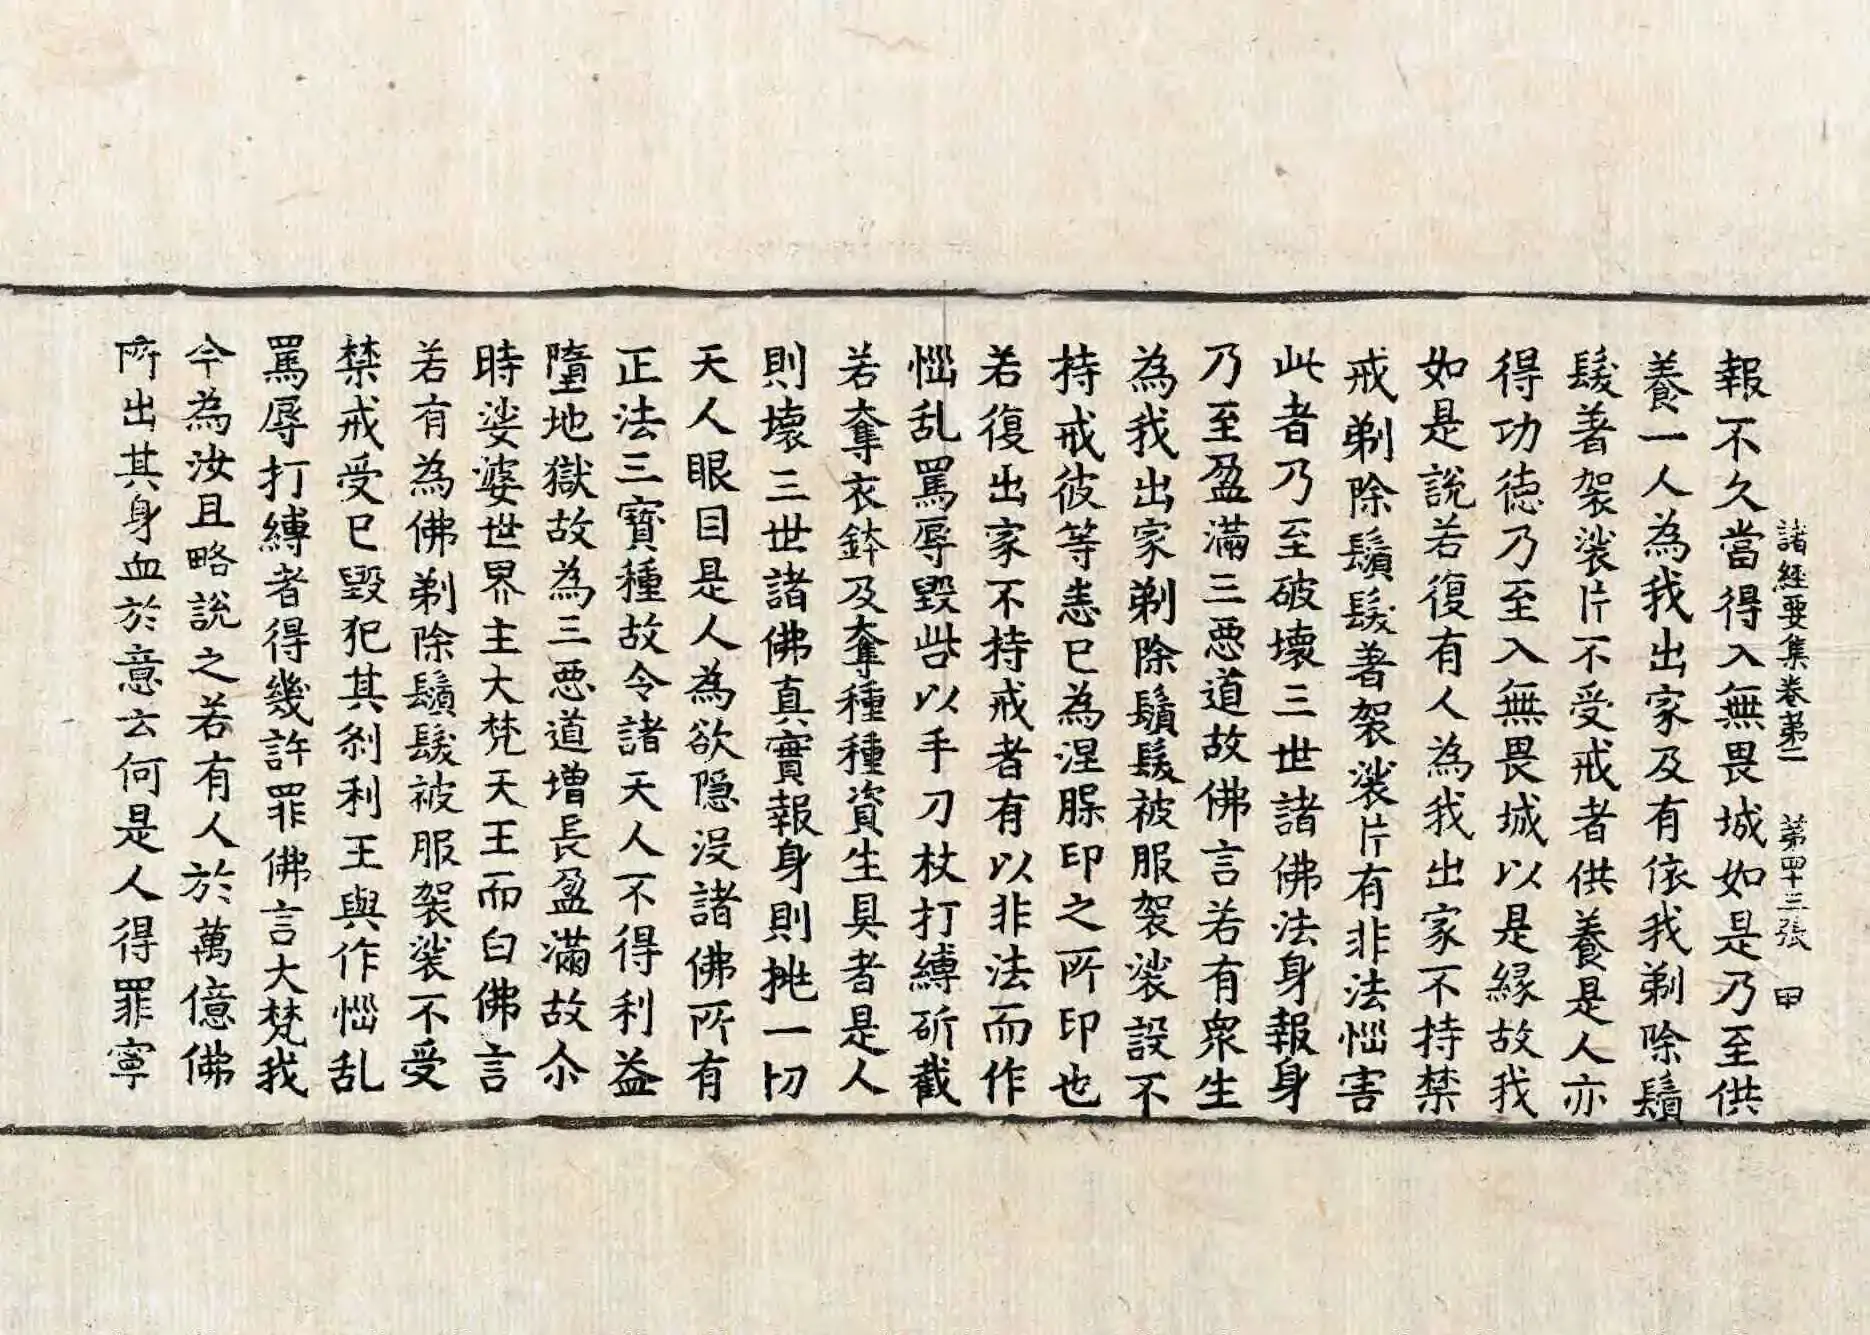 諸經要集卷第二 第四十三張 甲
報不久當得入無畏城如是乃至供
養一人為我出家及有依我剃除鬚
髮著袈裟片不受戒者供養是人亦
得功德乃至入無畏城以是緣故我
如是說若復有人為我出家不持禁
戒剃除鬚髮著袈裟片有非法惱害
此者乃至破壞三世諸佛法身報身
乃至盈滿三惡道故佛言若有眾生
為我出家剃除鬚髮被服袈裟設不
持戒彼等悉已為涅槃印之所印也
若復出家不持戒者有以非法而作
惱乱罵辱毀呰以手刀杖打縛斫截
若奪衣鉢及奪種種資生具者是人
則壞三世諸佛真實報身則挑一切
天人眼目是人為欲隱沒諸佛所有
正法三寶種故令諸天人不得利益
墮地獄故為三惡道增長盈滿故尒
時娑婆世界主大梵天王而白佛言
若有為佛剃除鬚髮被服袈裟不受
禁戒受已毀犯其剎利王與作惱乱
罵辱打縛者得幾許罪佛言大梵我
今為汝且略說之若有人於萬億佛
所出其身血於意云何是人得罪寧